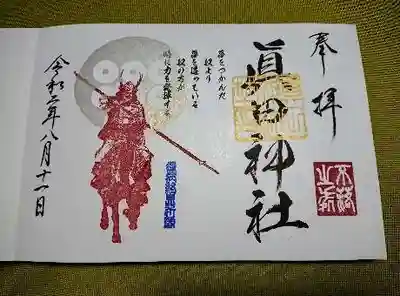 奉拝
眞田神社
夢をつかんだ
奴より
夢を追っている
奴の方が
時に力を発揮す
令和二年八月十一日
不落
之城